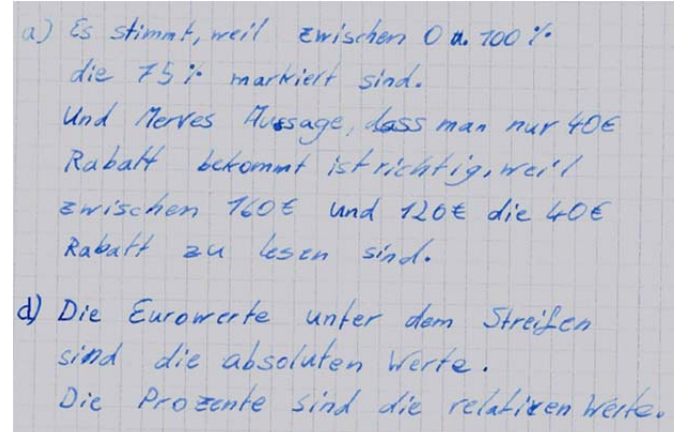 a) Es stimmt, weil zwischen 0 u. 100 %
die 75 % markiert sind.
Und Merves Aussage, dass man nur 40€
Rabatt bekommt ist richtig, weil
zwischen 160€ und 120€ die 40€
Rabatt zu lesen sind.
d) Die Eurowerte unter dem Streifen
sind die absoluten Werte.
Die Prozente sind die relativen Werte.